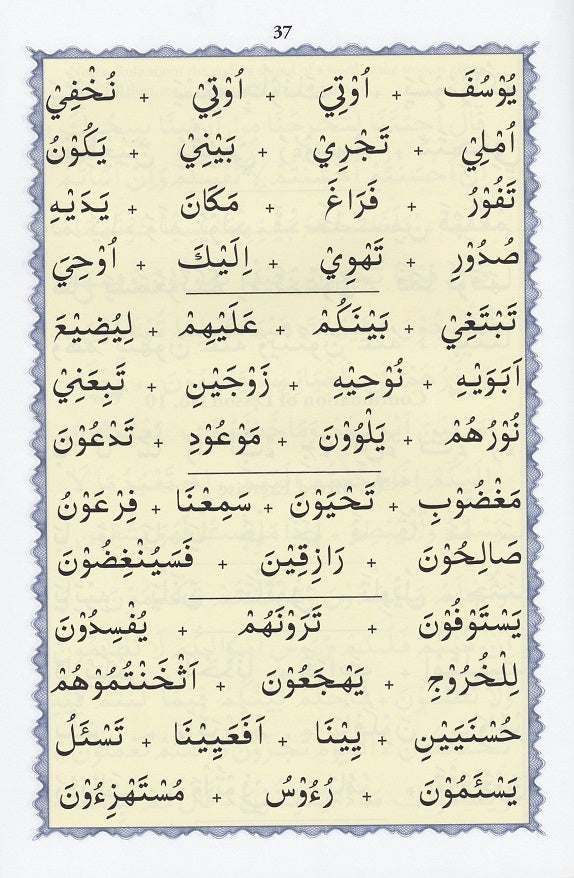 37
يُوْسُفَ + اُوْتِيَ + اُوْتِيْ + نُخْفِيْ
اُمْلِيْ + تَجْرِيْ + بَيْنِيْ + يَكُوْنُ
تَفُوْرُ + فَرَاغَ + مَكَانَ + يَدَيْهِ
صُدُوْرِ + تَهْوِيْ + اِلَيْكَ + اُوْحِيَ
تَبْتَغِيْ + بَيْنَكُمْ + عَلَيْهِمْ + لِيُضِيْعَ
اَبَوَيْهِ + نُوْحِيْهِ + زَوْجَيْنِ + تَبِعَنِيْ
نُوْرُهُمْ + يَلْوُوْنَ + مَوْعُوْدِ + تَدْعُوْنَ
مَغْضُوْبِ + تَحْيَوْنَ + سَمِعْنَا + فِرْعَوْنُ
صَالِحُوْنَ + رَازِقِيْنَ + فَسَيُنْغِضُوْنَ
يَسْتَوْفُوْنَ + تَرَوْنَهُمْ + يُفْسِدُوْنَ
لِلْخُرُوْجِ + يَهْجَعُوْنَ + اَثْخَنْتُمُوْهُمْ
حُسْنَيَيْنِ + يِيْنَا + اَفَعَيِيْنَا + تَسْئَلُ
يَسْئَمُوْنَ + رُءُوْسُ + مُسْتَهْزِءُوْنَ